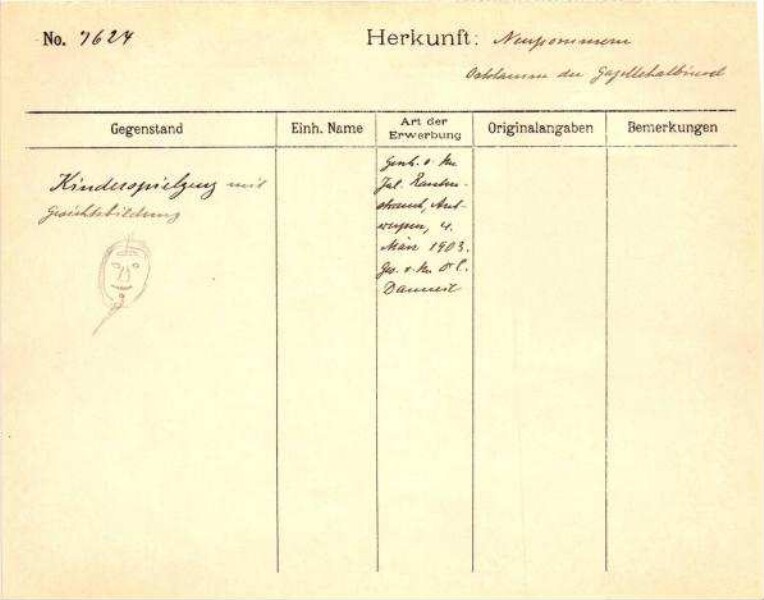 No. 7624
Herkunft: Neupommern
der Gazellehalbinsel
Gegenstand
Einh. Name
Art der Erwerbung
Originalangaben
Bemerkungen
Kinderspielzeug mit
Gesichtsbildung
Gesch. v. Hn
Jul. Rauten-
strauch, Ant-
werpen, 4.
März 1903.
Ges. v. Hn